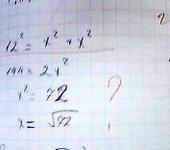 12² = x² + x²
144 = 2x²
x² = 72
x = √72
?